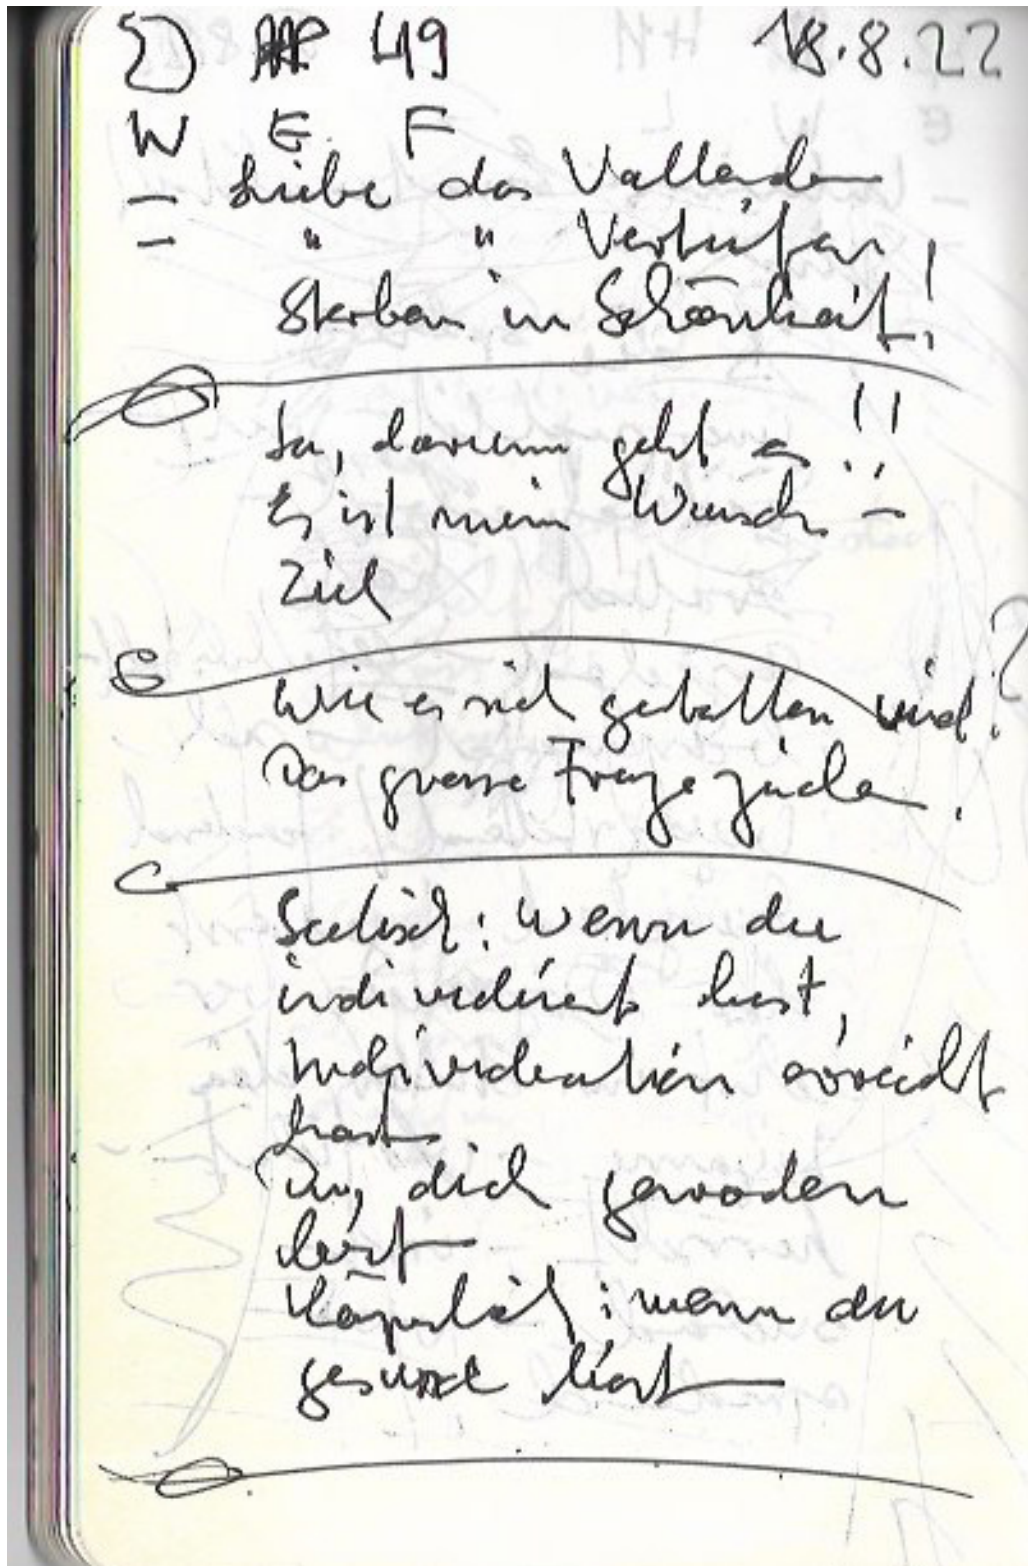 49 18.8.22
W E F
– Liebe das Vollenden
– " " Vertiefen!
Sterben in Schönheit!
Ja, darum geht es!!
Es ist mein Wunsch –
Ziel
Wie es sich gestalten wird?
Das grosse Fragezeichen.
Seelisch: Wenn du
individuiert hast,
Individuation erreicht
hast
Du, dich geworden
bist
Körperlich: wenn du
gesund bist